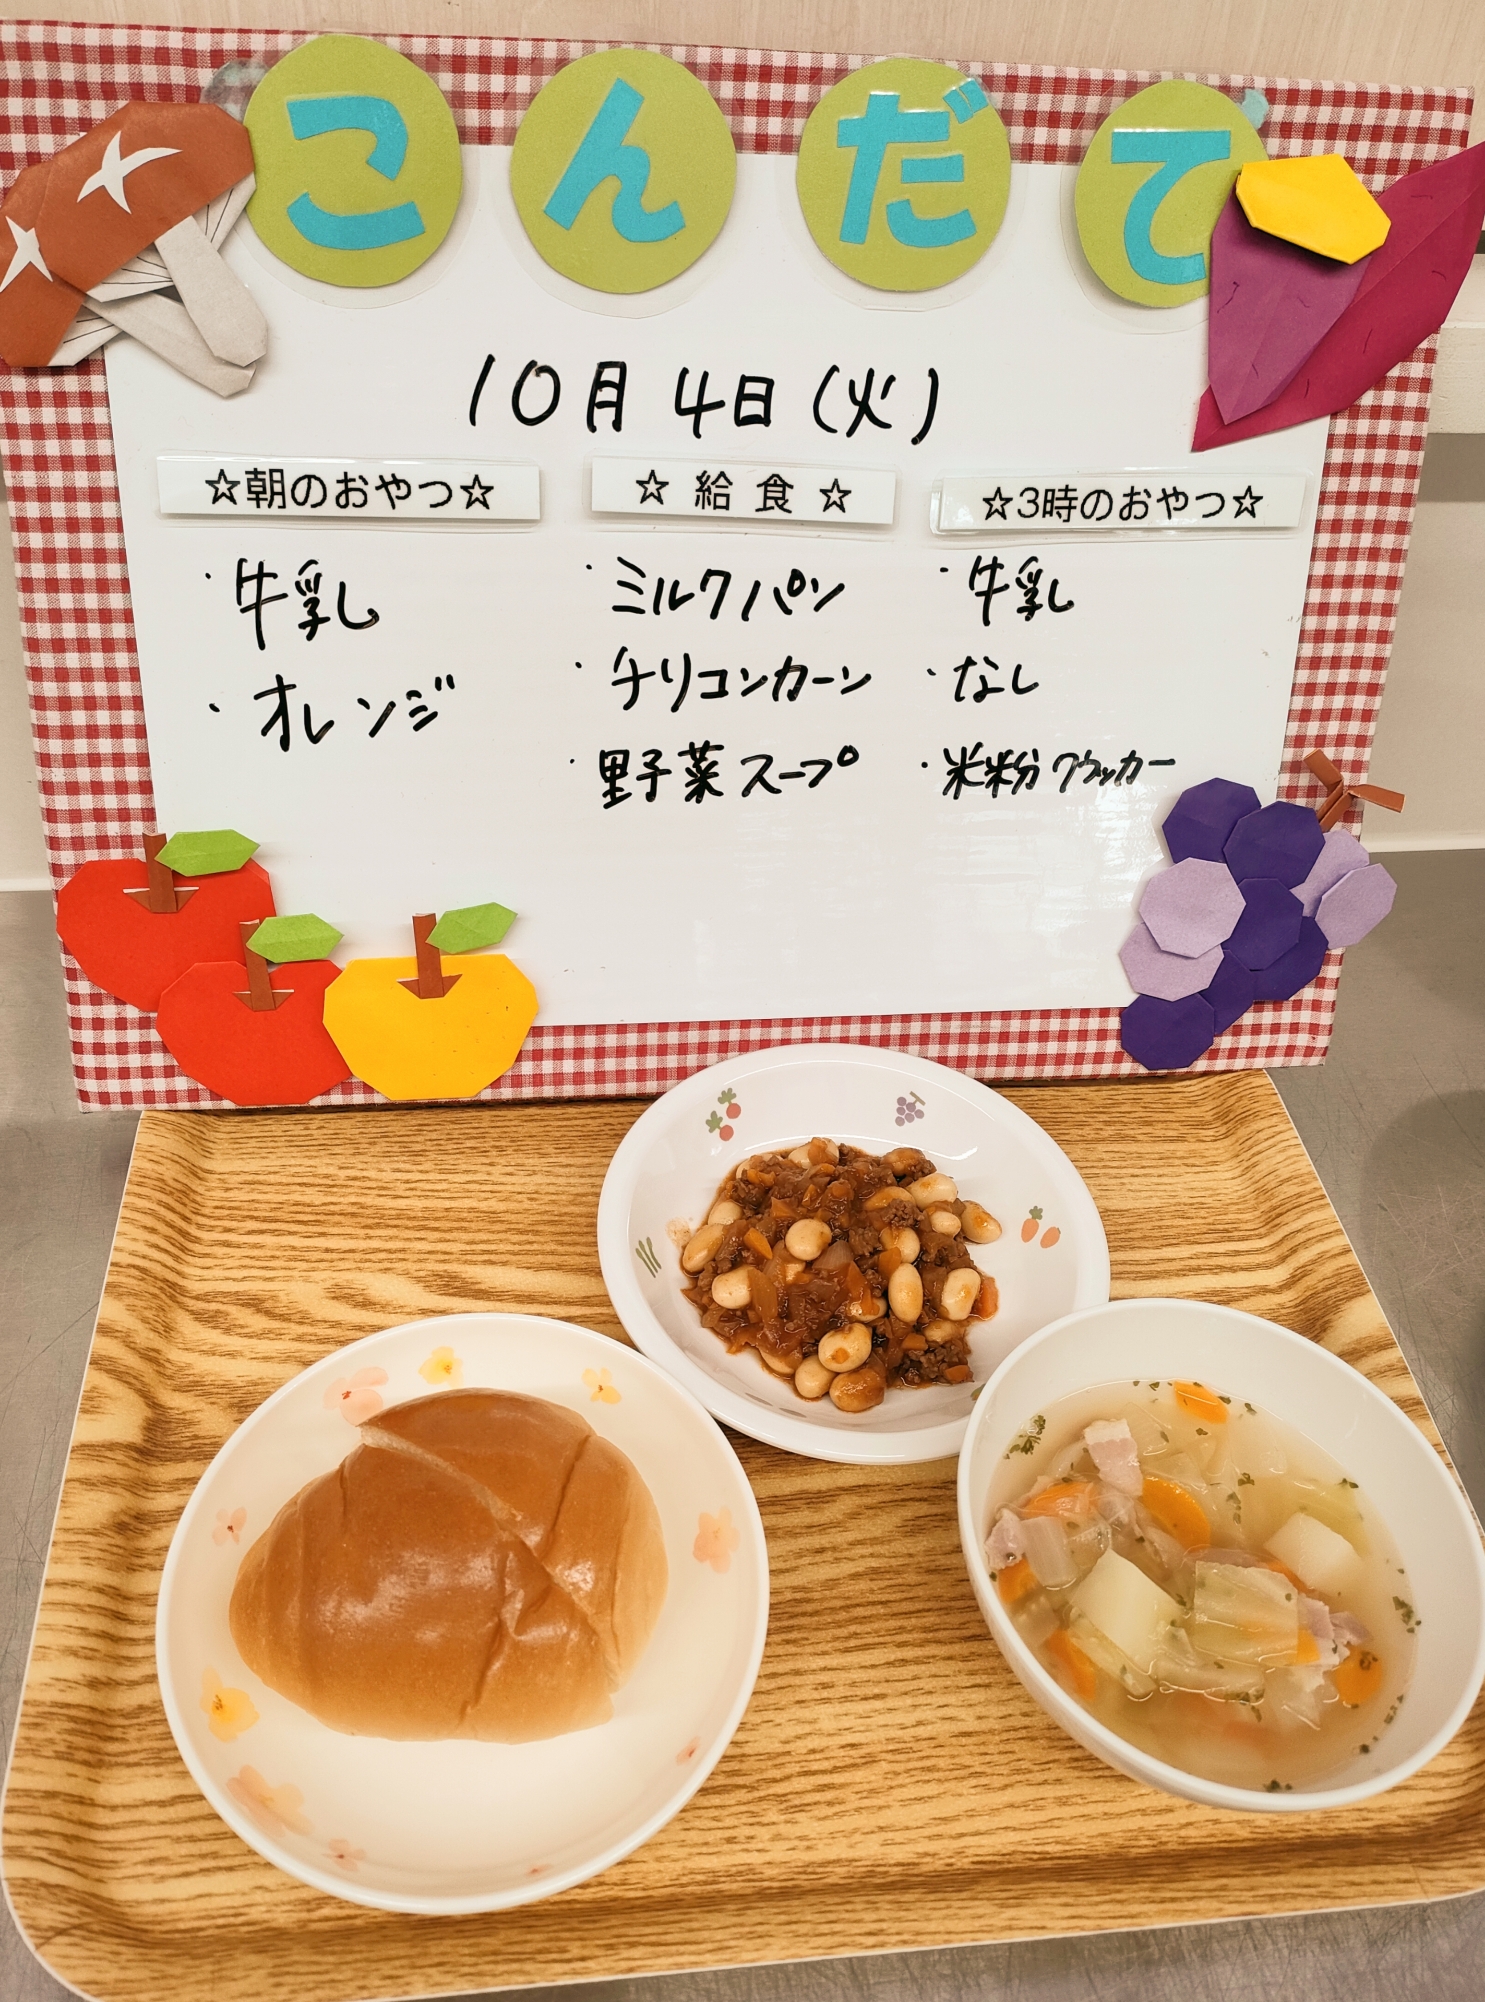 こんだて
10月4日(火)
☆朝のおやつ☆
・牛乳
・オレンジ
☆給食☆
・ミルクパン
・チリコンカーン
・野菜スープ
☆3時のおやつ☆
・牛乳
・なし
・米粉クラッカー